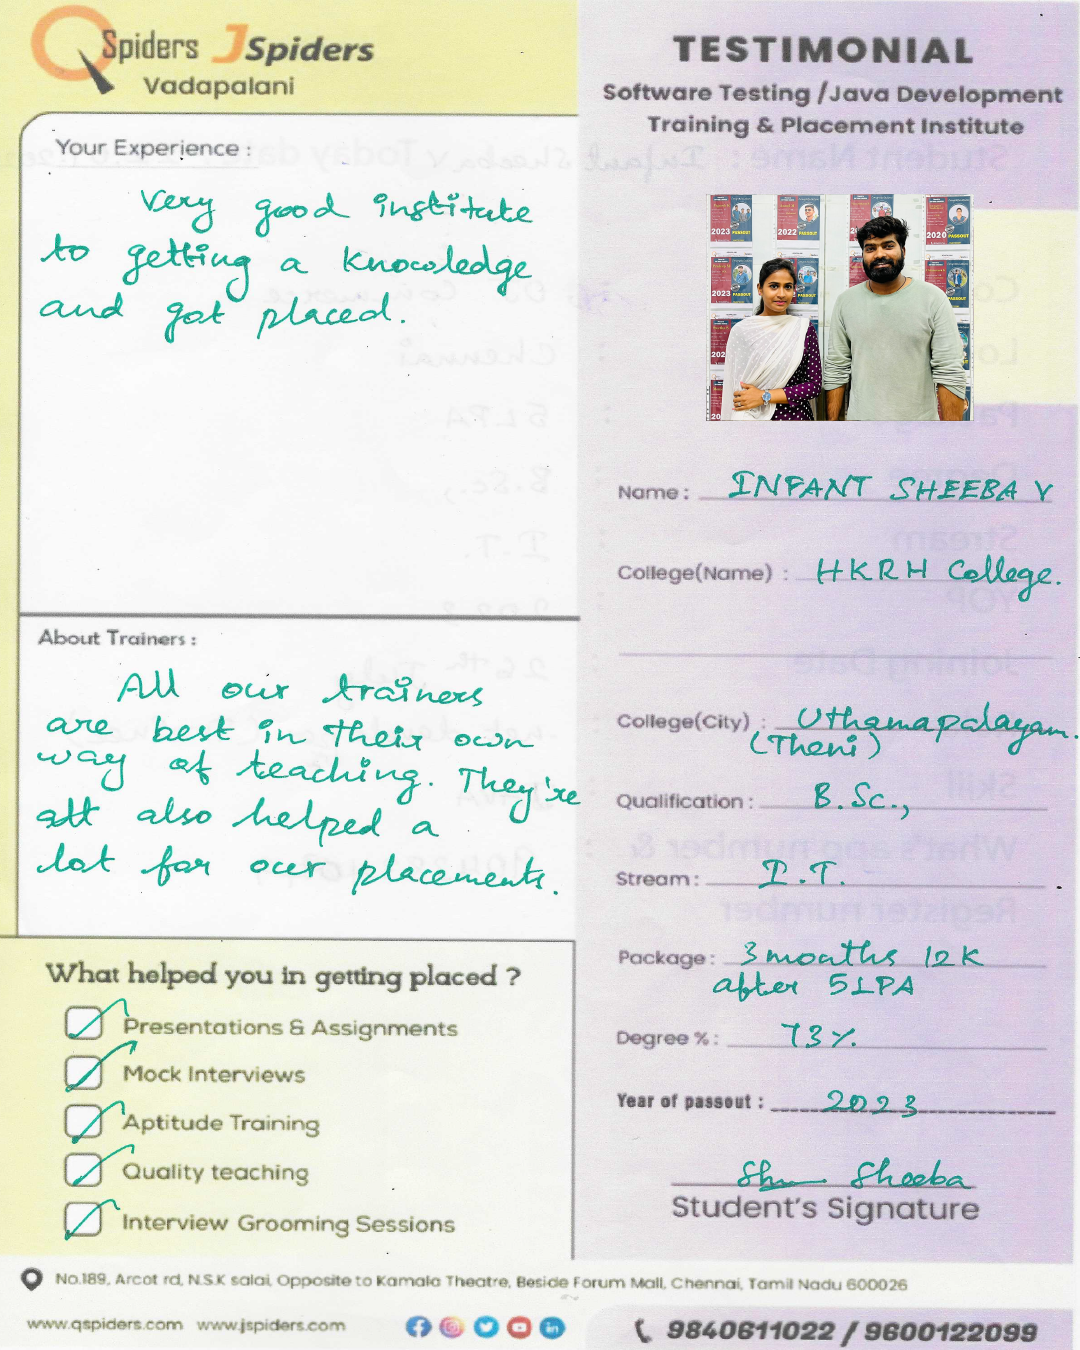 QSpiders JSpiders
Vadapalani
Your Experience :
Very good institute
to getting a knowledge
and got placed.
About Trainers :
All our trainers
are best in their own
way of teaching. They're
all also helped a
lot for our placements.
What helped you in getting placed ?
Presentations & Assignments
Mock Interviews
Aptitude Training
Quality teaching
Interview Grooming Sessions
TESTIMONIAL
Software Testing /Java Development
Training & Placement Institute
2023 PASSOUT
2022 PASSOUT
2020 PASSOUT
2023 PASSOUT
Name : INFANT SHEEBA V
College(Name) : HKRH College.
College(City) : Uthamapalayam.
(Theni)
Qualification : B.Sc.,
Stream : I.T.
Package : 3 months 12K
after 5LPA
Degree % : 73%
Year of passout : 2023
Sheeba
Student's Signature
No.189, Arcot rd, N.S.K salai, Opposite to Kamala Theatre, Beside Forum Mall, Chennai, Tamil Nadu 600026
www.qspiders.com www.jspiders.com
9840611022 / 9600122099